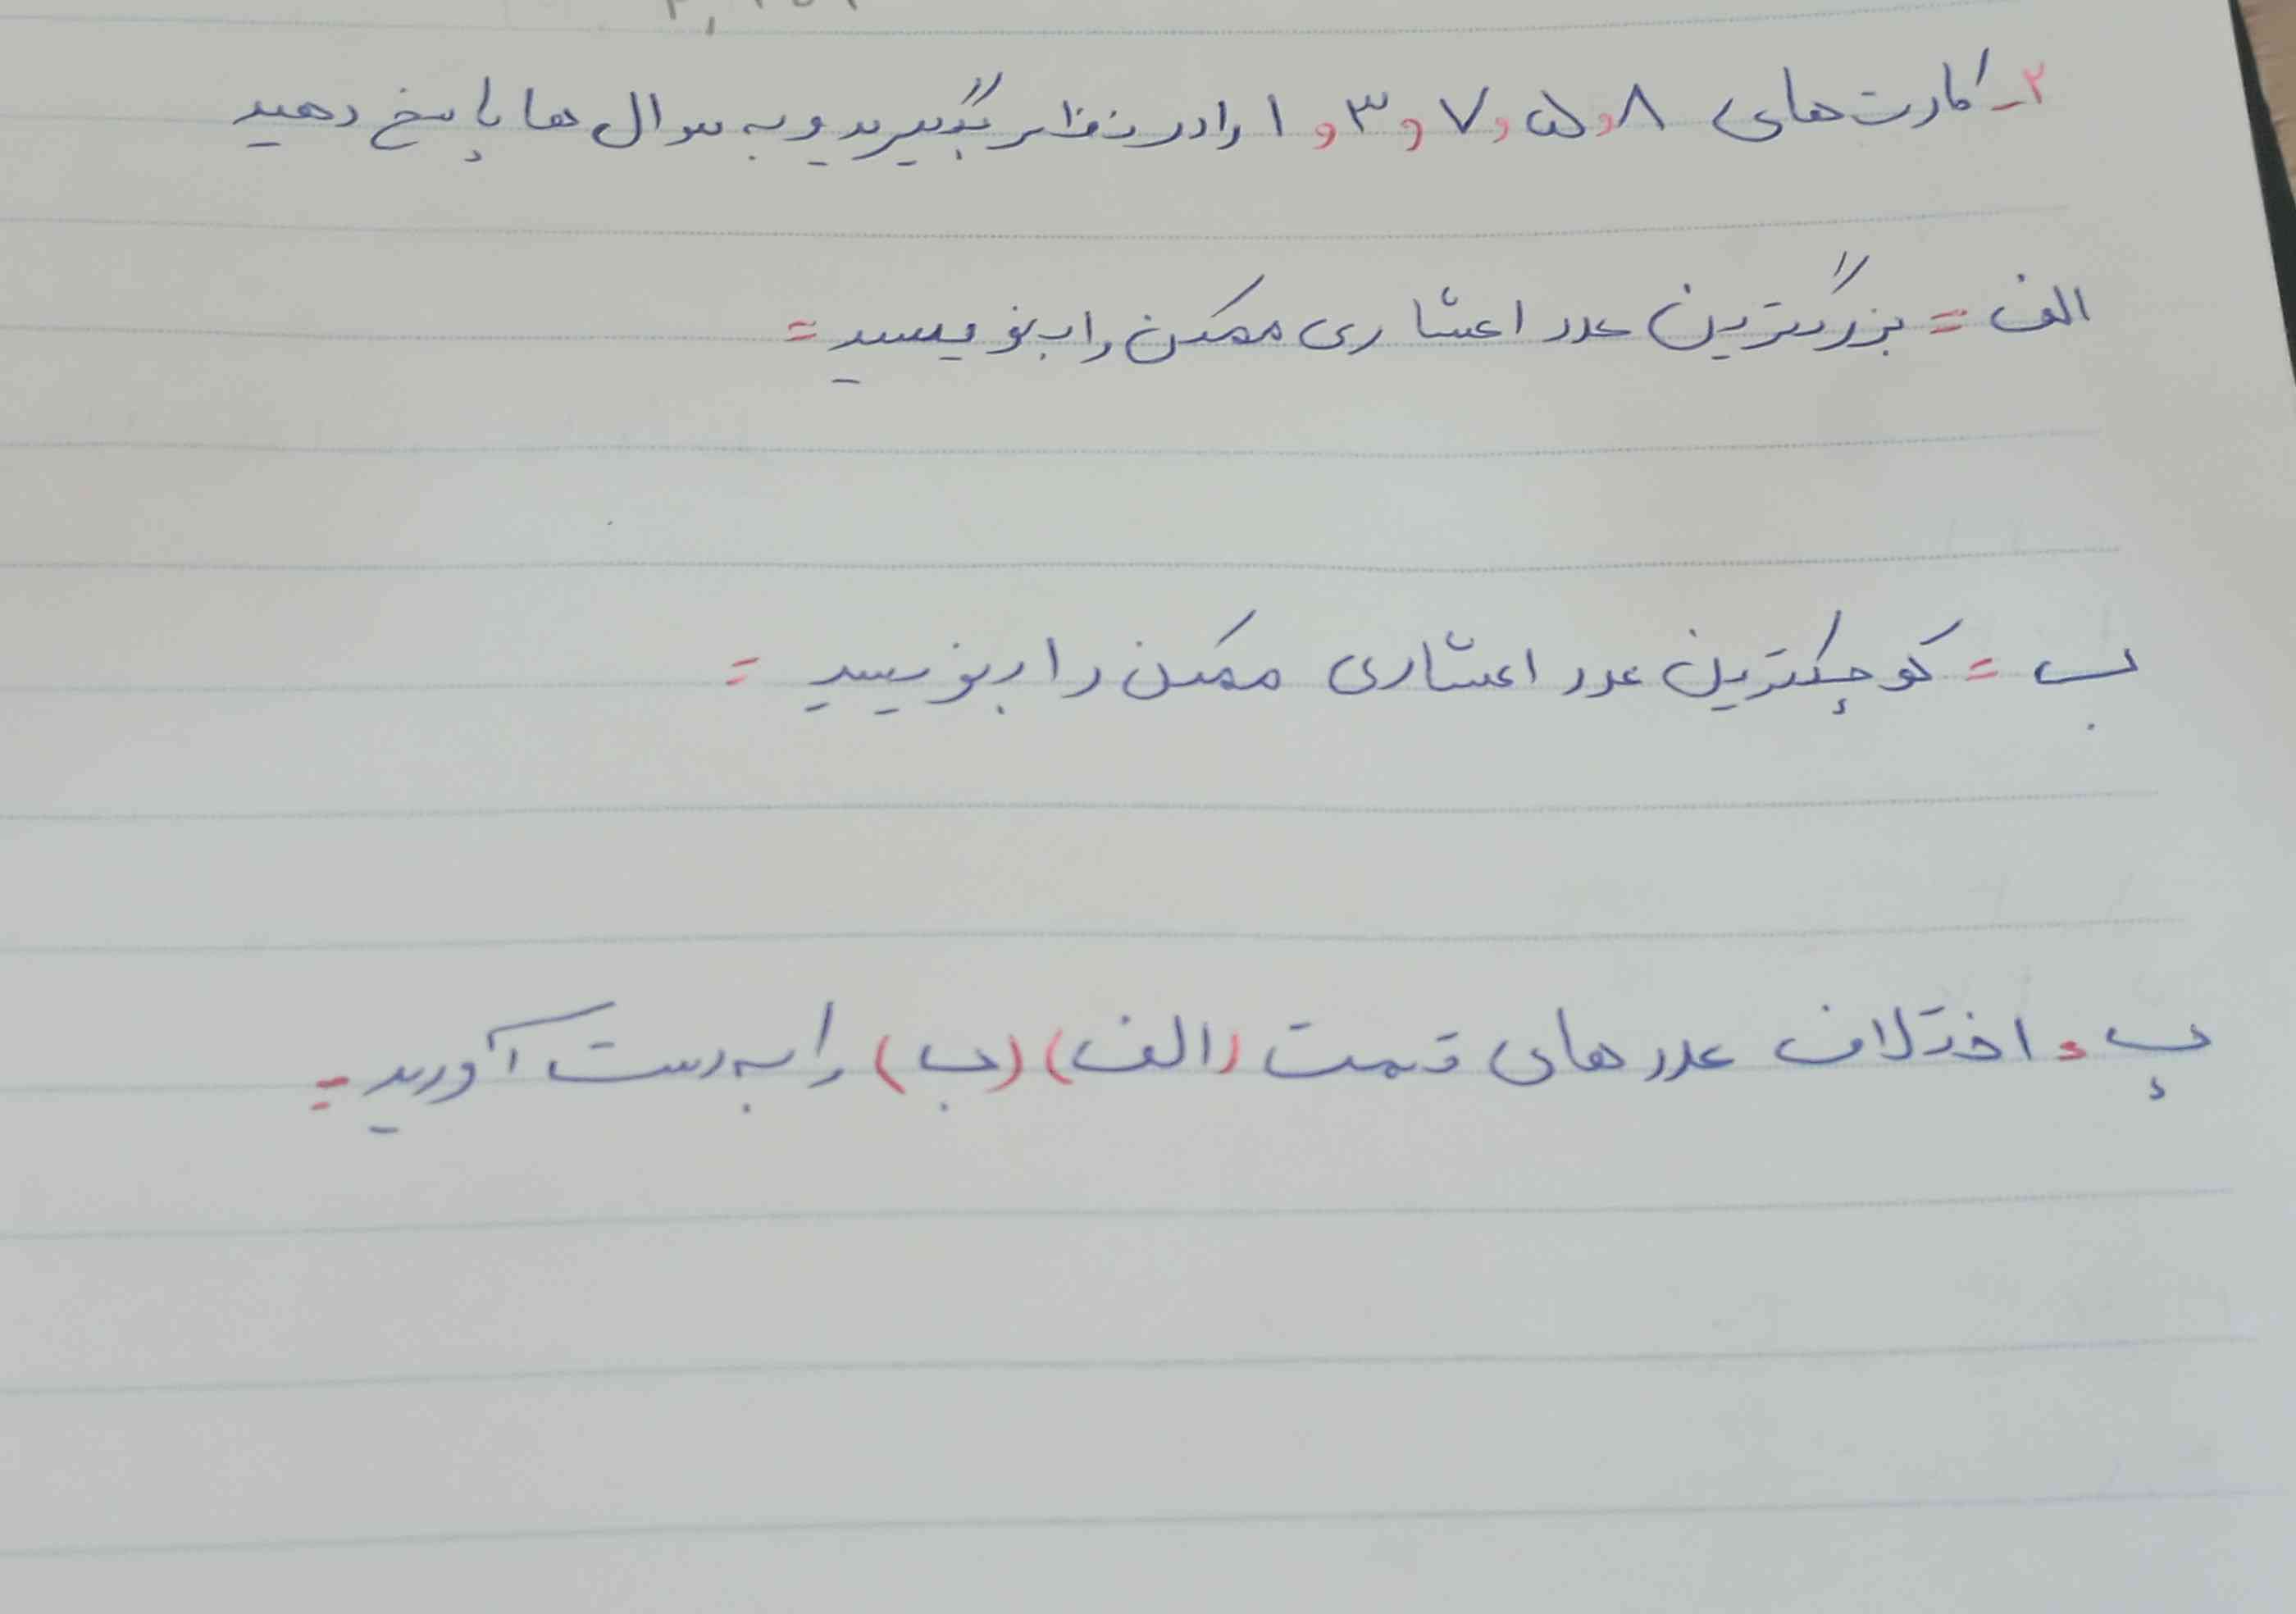 ۲- کارت‌های ۸ و ۵ و ۷ و ۳ و ۱ را در نظر بگیرید و به سوال ها پاسخ دهید
الف = بزرگترین عدد اعشاری ممکن را بنویسید =
ب = کوچکترین عدد اعشاری ممکن را بنویسید =
پ = اختلاف عددهای قسمت (الف) (ب) را به دست آورید =